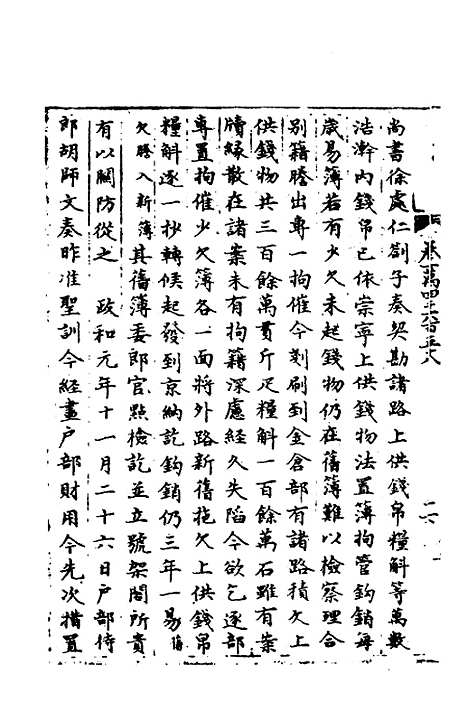 尚書徐處仁劄子奏契勘諸路上供錢帛糧斛等萬數
浩瀚內錢帛已依崇寧上供錢物法置簿拘管鈎銷每
歲易簿若有少欠未起錢物仍在舊簿難以檢察理合
別籍謄出專一拘催今剗刷到金倉部有諸路積欠上
供錢物共三百餘萬貫斤疋糧斛一百餘萬石雖有案
牘緣散在諸案未有拘籍深慮經久失陷今欲乞逐部
專置拘催少欠簿各一面將外路新舊拖欠上供錢帛
糧斛逐一抄轉候起發到京納訖鈎銷仍三年一易舊
欠謄入新簿其舊簿委郎官點檢訖並立號架閣所貴
有以關防從之 政和元年十一月二十六日戶部侍
郎胡師文奏昨准聖訓今經畫戶部財用今先次措置